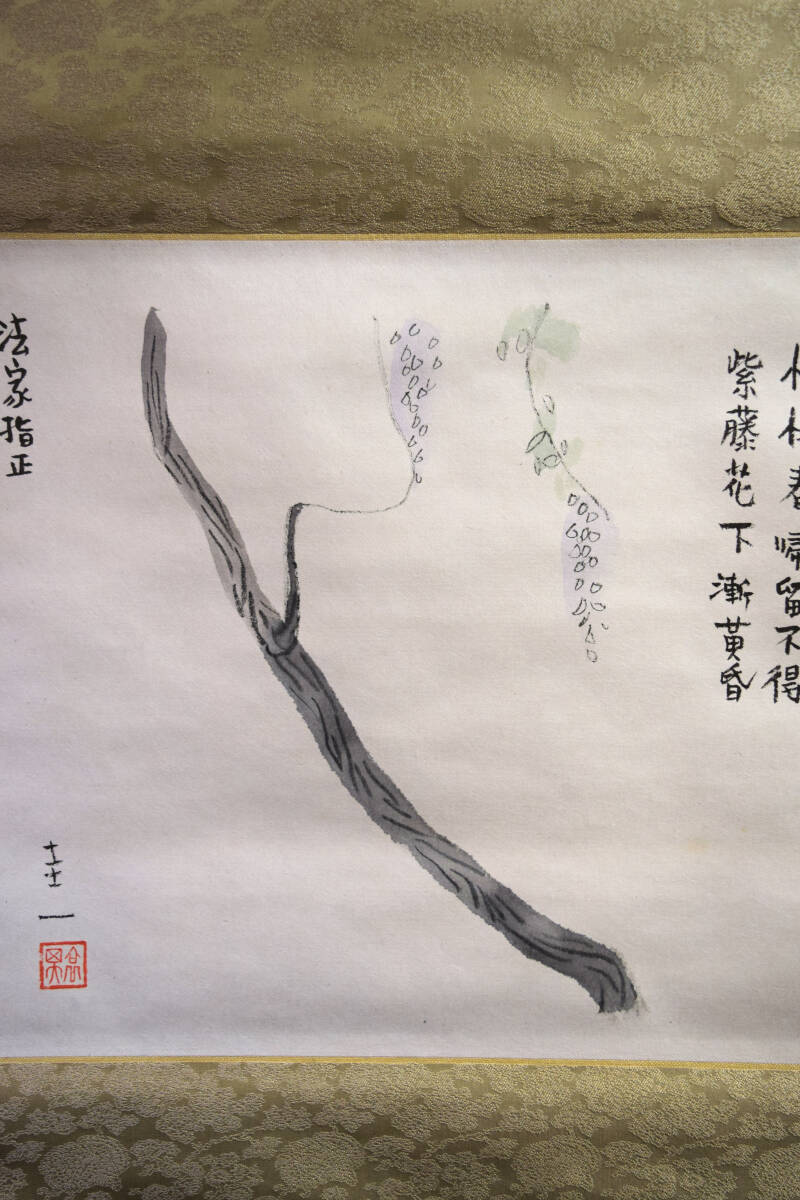 春帰留不得
紫藤花下漸黄昏
法家指正
圭一